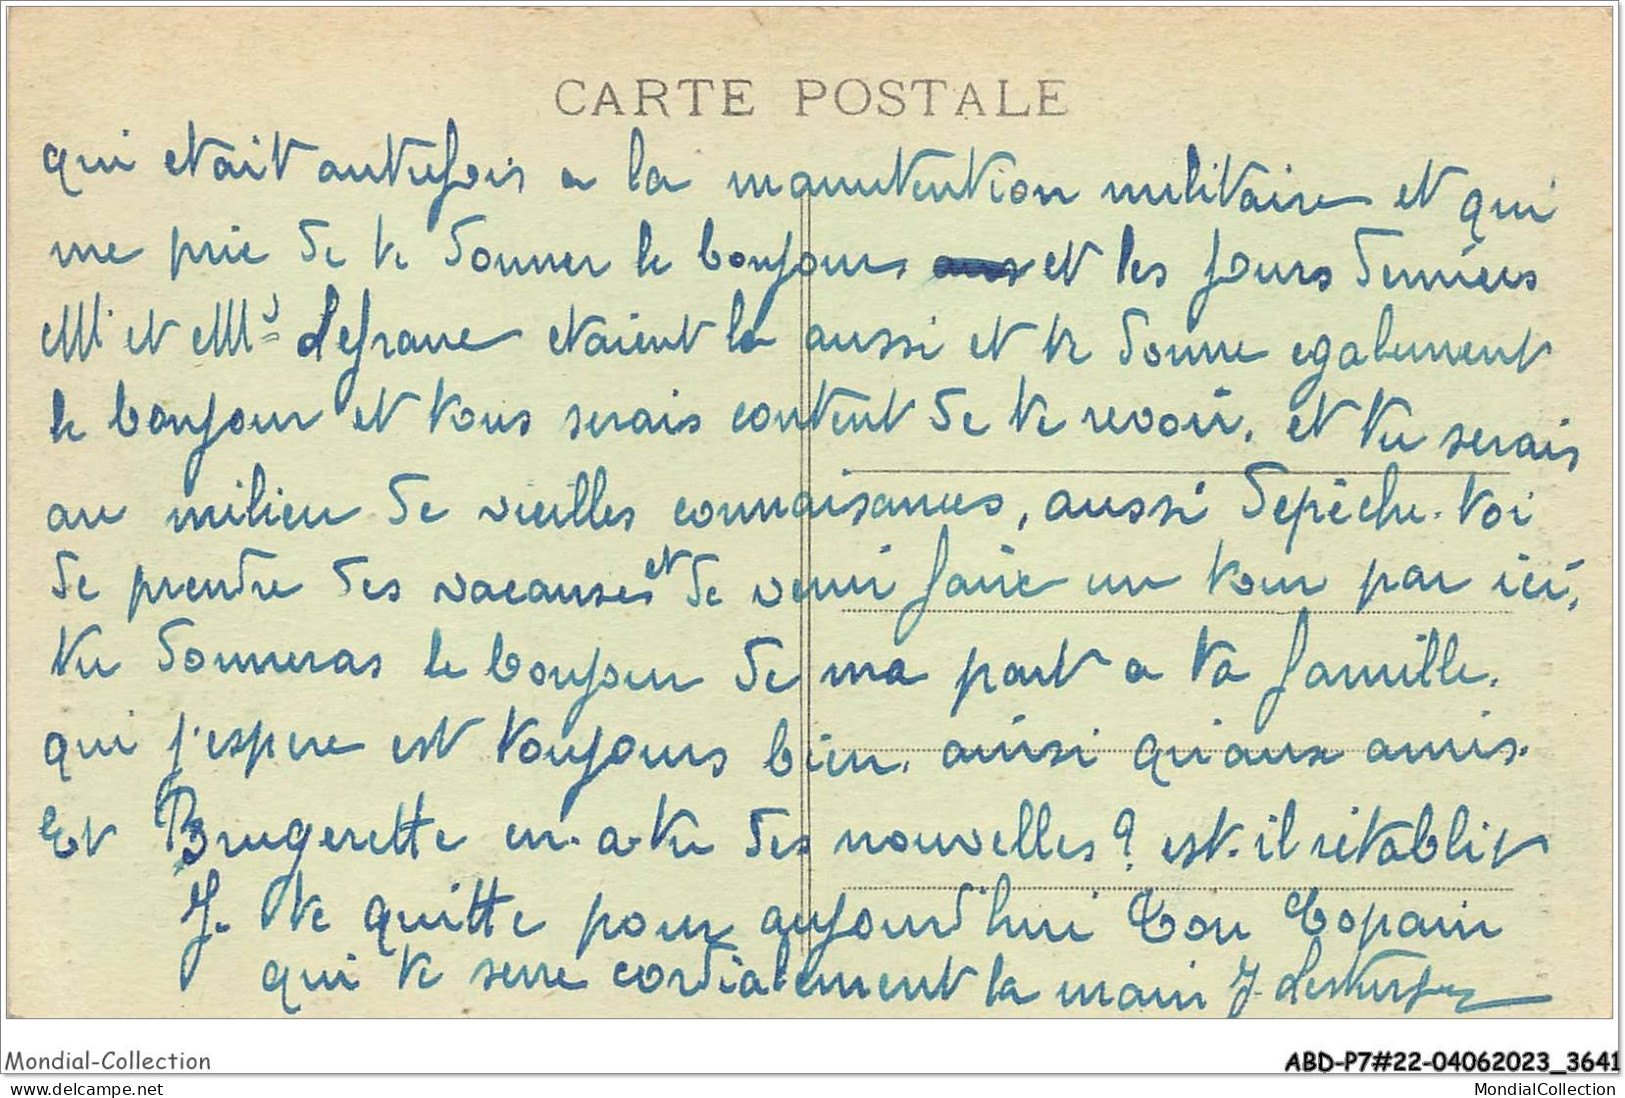 CARTE POSTALE
qui etait autrefois a la manutention militaire et qui
me prie de te donner le bonjour et les jours derniers
Mr et Mme defrane etaient la aussi et te donne egalement
le bonjour et tous serais content de te revoir. et tu serais
au milieu de vieilles connaisances, aussi depêche-toi
de prendre des vacanses et de venir faire un tour par ici,
tu donneras le bonjour de ma part a ta famille.
qui j'espere est toujours bien. ainsi qu'aux amis.
Et Brugerette en-a-tu des nouvelles? est-il rétablit
Je te quitte pour aujourd'hui Ton Copain
qui te serre cordialement la main J.
Mondial-Collection
ABD-P7#22-04062023_3641
www.delcampe.net
MondialCollection